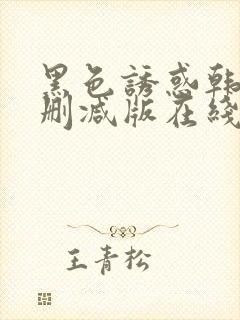 黑色誘惑韩
删减版在綫
王青松